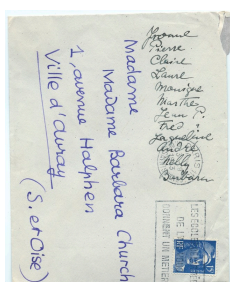 Yvonne
Pierre
Claire
Laure
Monique
Marthe
Jean P.
Fred
Jacqueline
André
Nelly
Barbara
Madame
Madame Barbara Church
1, avenue Halphen
Ville d'avray
(S. et Oise)
LES ÉCOLES
DE L'
DONNENT UN METIER